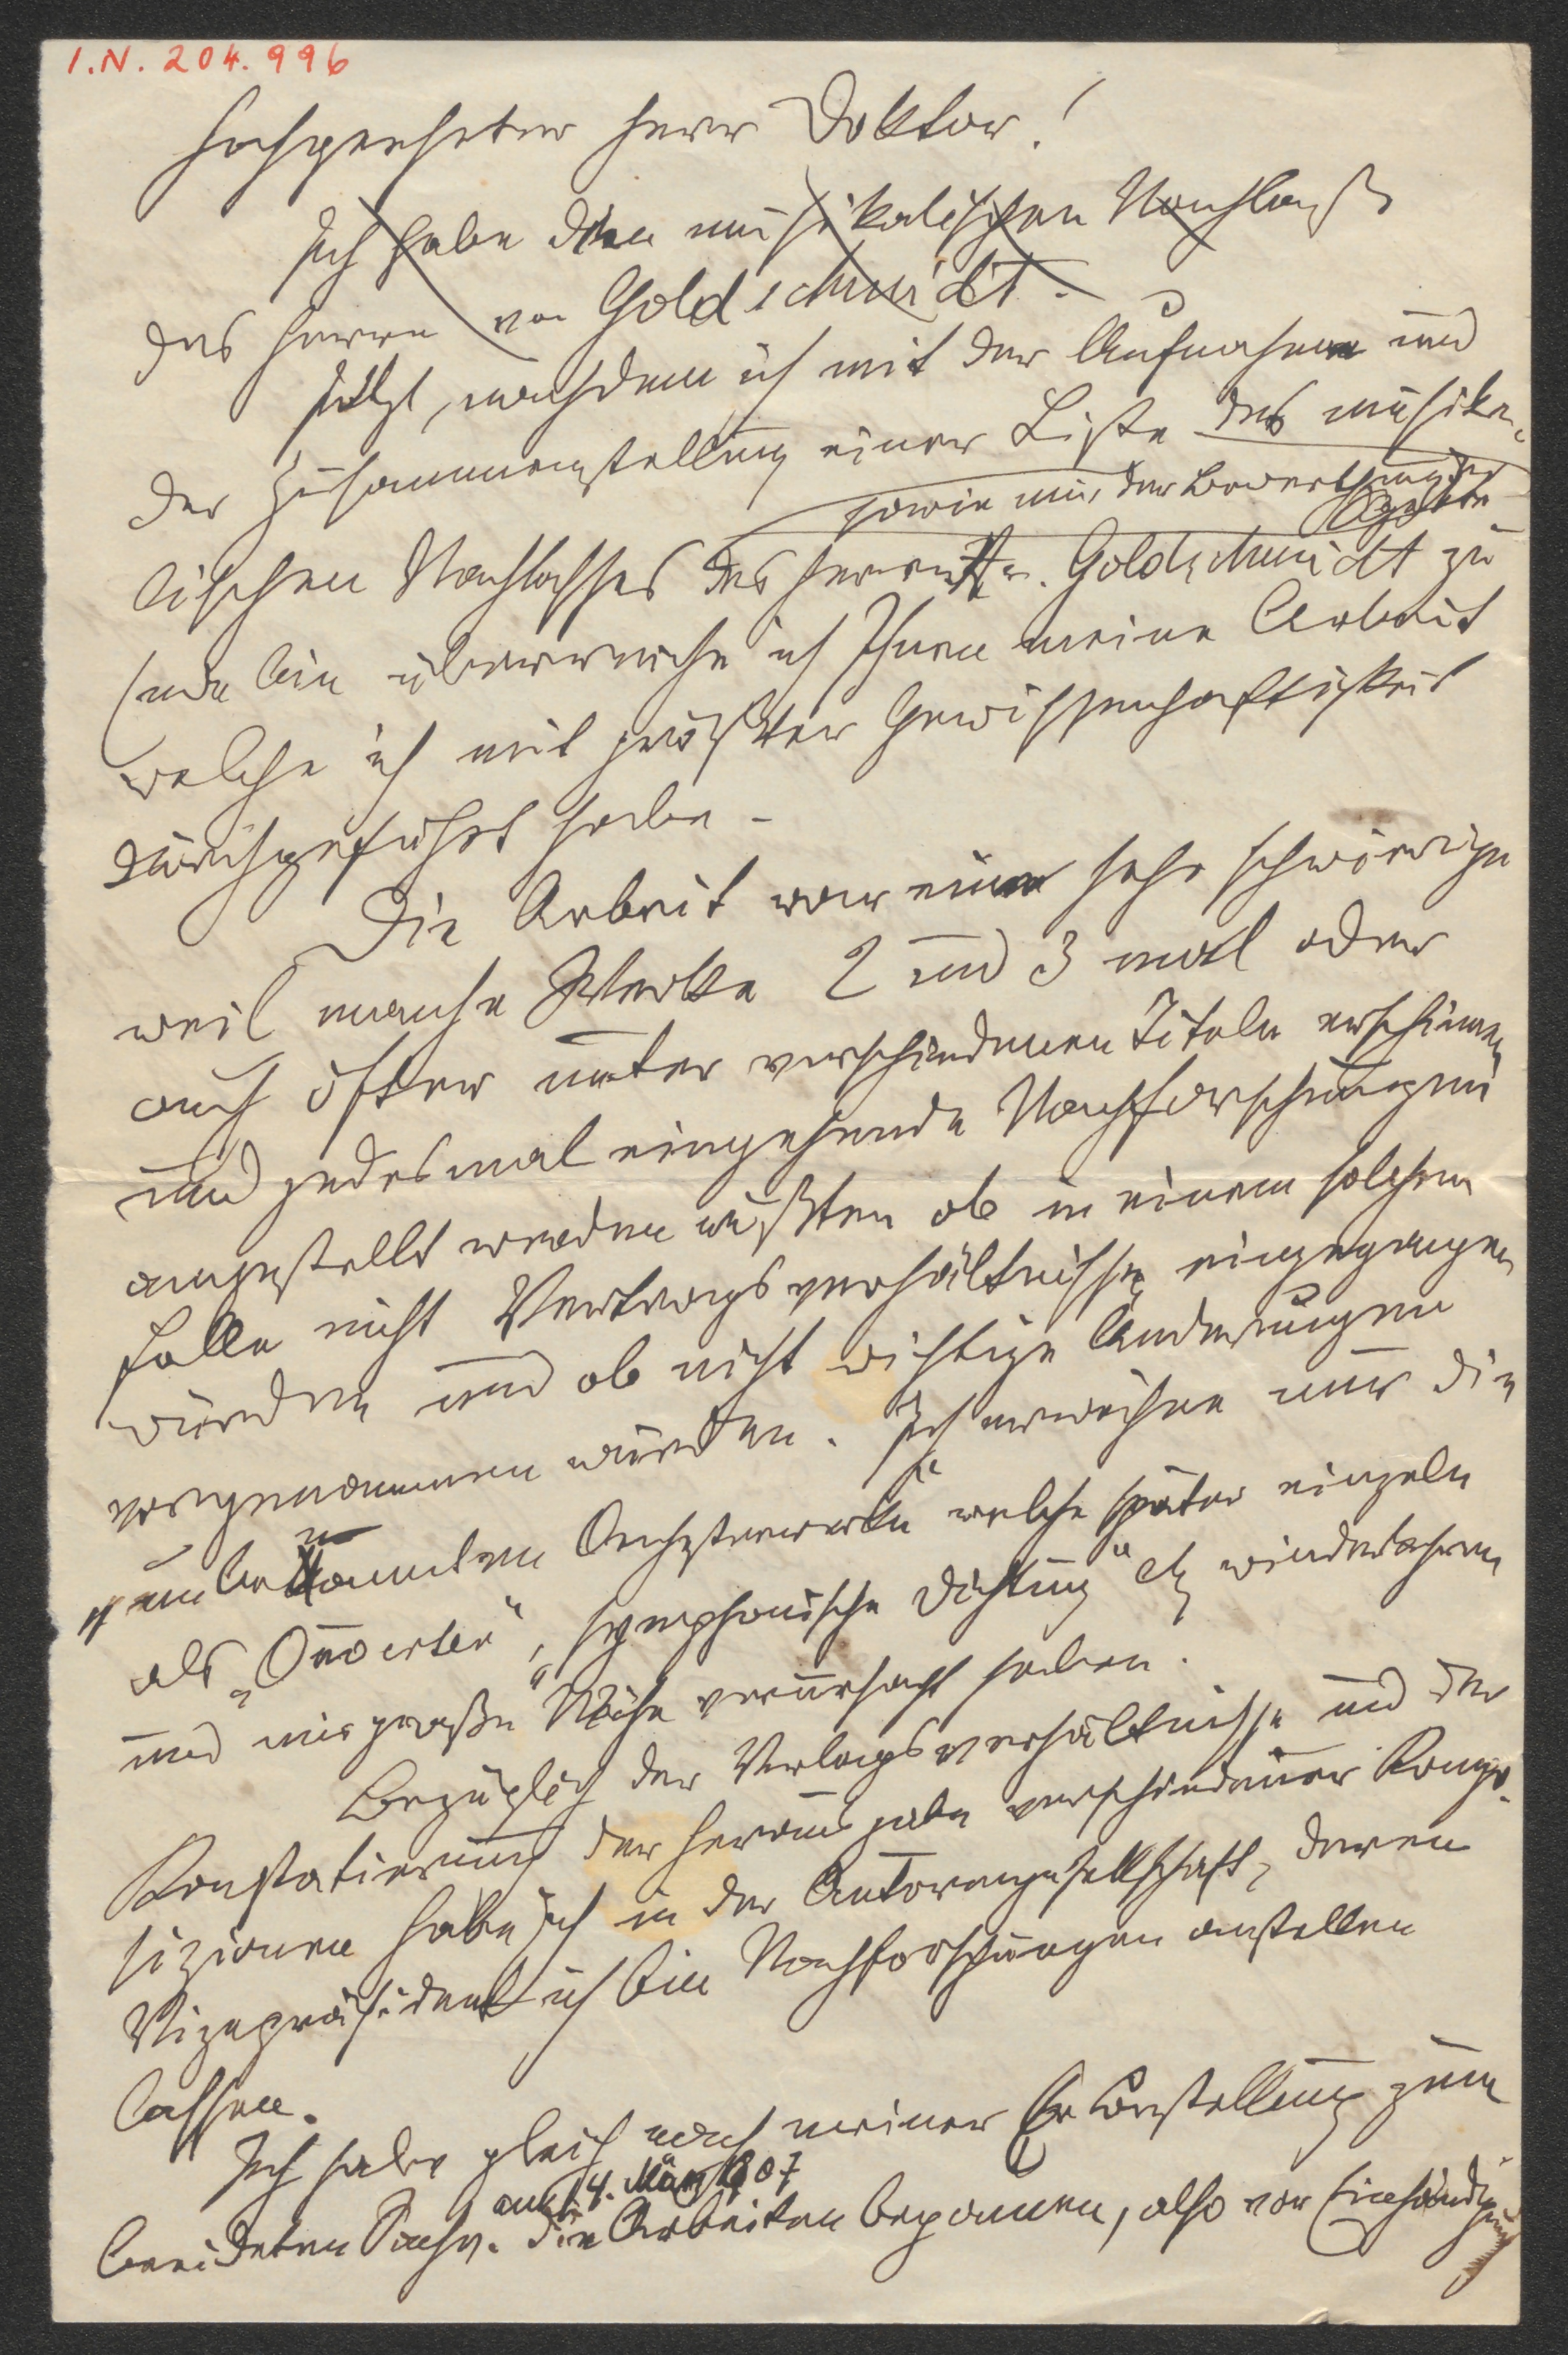 I.N. 204.996
Hochgeehrter Herr Doktor!
Ich habe den musikalischen Nachlaß
des Herrn von Goldschmidt.
Jetzt, nachdem ich mit der Aufnahme und
der Zusammenstellung einer Liste des musika-
sowie mit der Bewertung der
lischen Nachlasses des Herrn v. Goldschmidt zu
Ende bin überreiche ich Ihnen meine Arbeit
welche ich mit größter Gewissenhaftigkeit
durchgeführt habe -
Die Arbeit war eine sehr schwierige
weil manche Werke 2 und 3 mal oder
auch öfter unter verschiedenen Titeln erschienen
und jedesmal eingehende Nachforschungen
angestellt werden mußten ob in einem solchen
Falle nicht Vertragsverhältnisse eingegangen
wurden und ob nicht wichtige Änderungen
vorgenommen wurden. Ich erwähne nur die
"unbenannten Orchesterwerke" welche später einzeln
als "Ouverture", "symphonische Dichtung" etz wiederkehren
und mir große Mühe verursacht haben.
Bezüglich der Verlagsverhältnisse und der
Konstatierung der Herausgabe verschiedener Kompo-
sizionen habe ich in der Autorengesellschaft, deren
Vizepräsident ich bin Nachforschungen anstellen
lassen.
Ich habe gleich nach meiner Bestellung zum
am 14. März 1907
beeideten Sachv. die Arbeiten begonnen, also vor Einhändigung